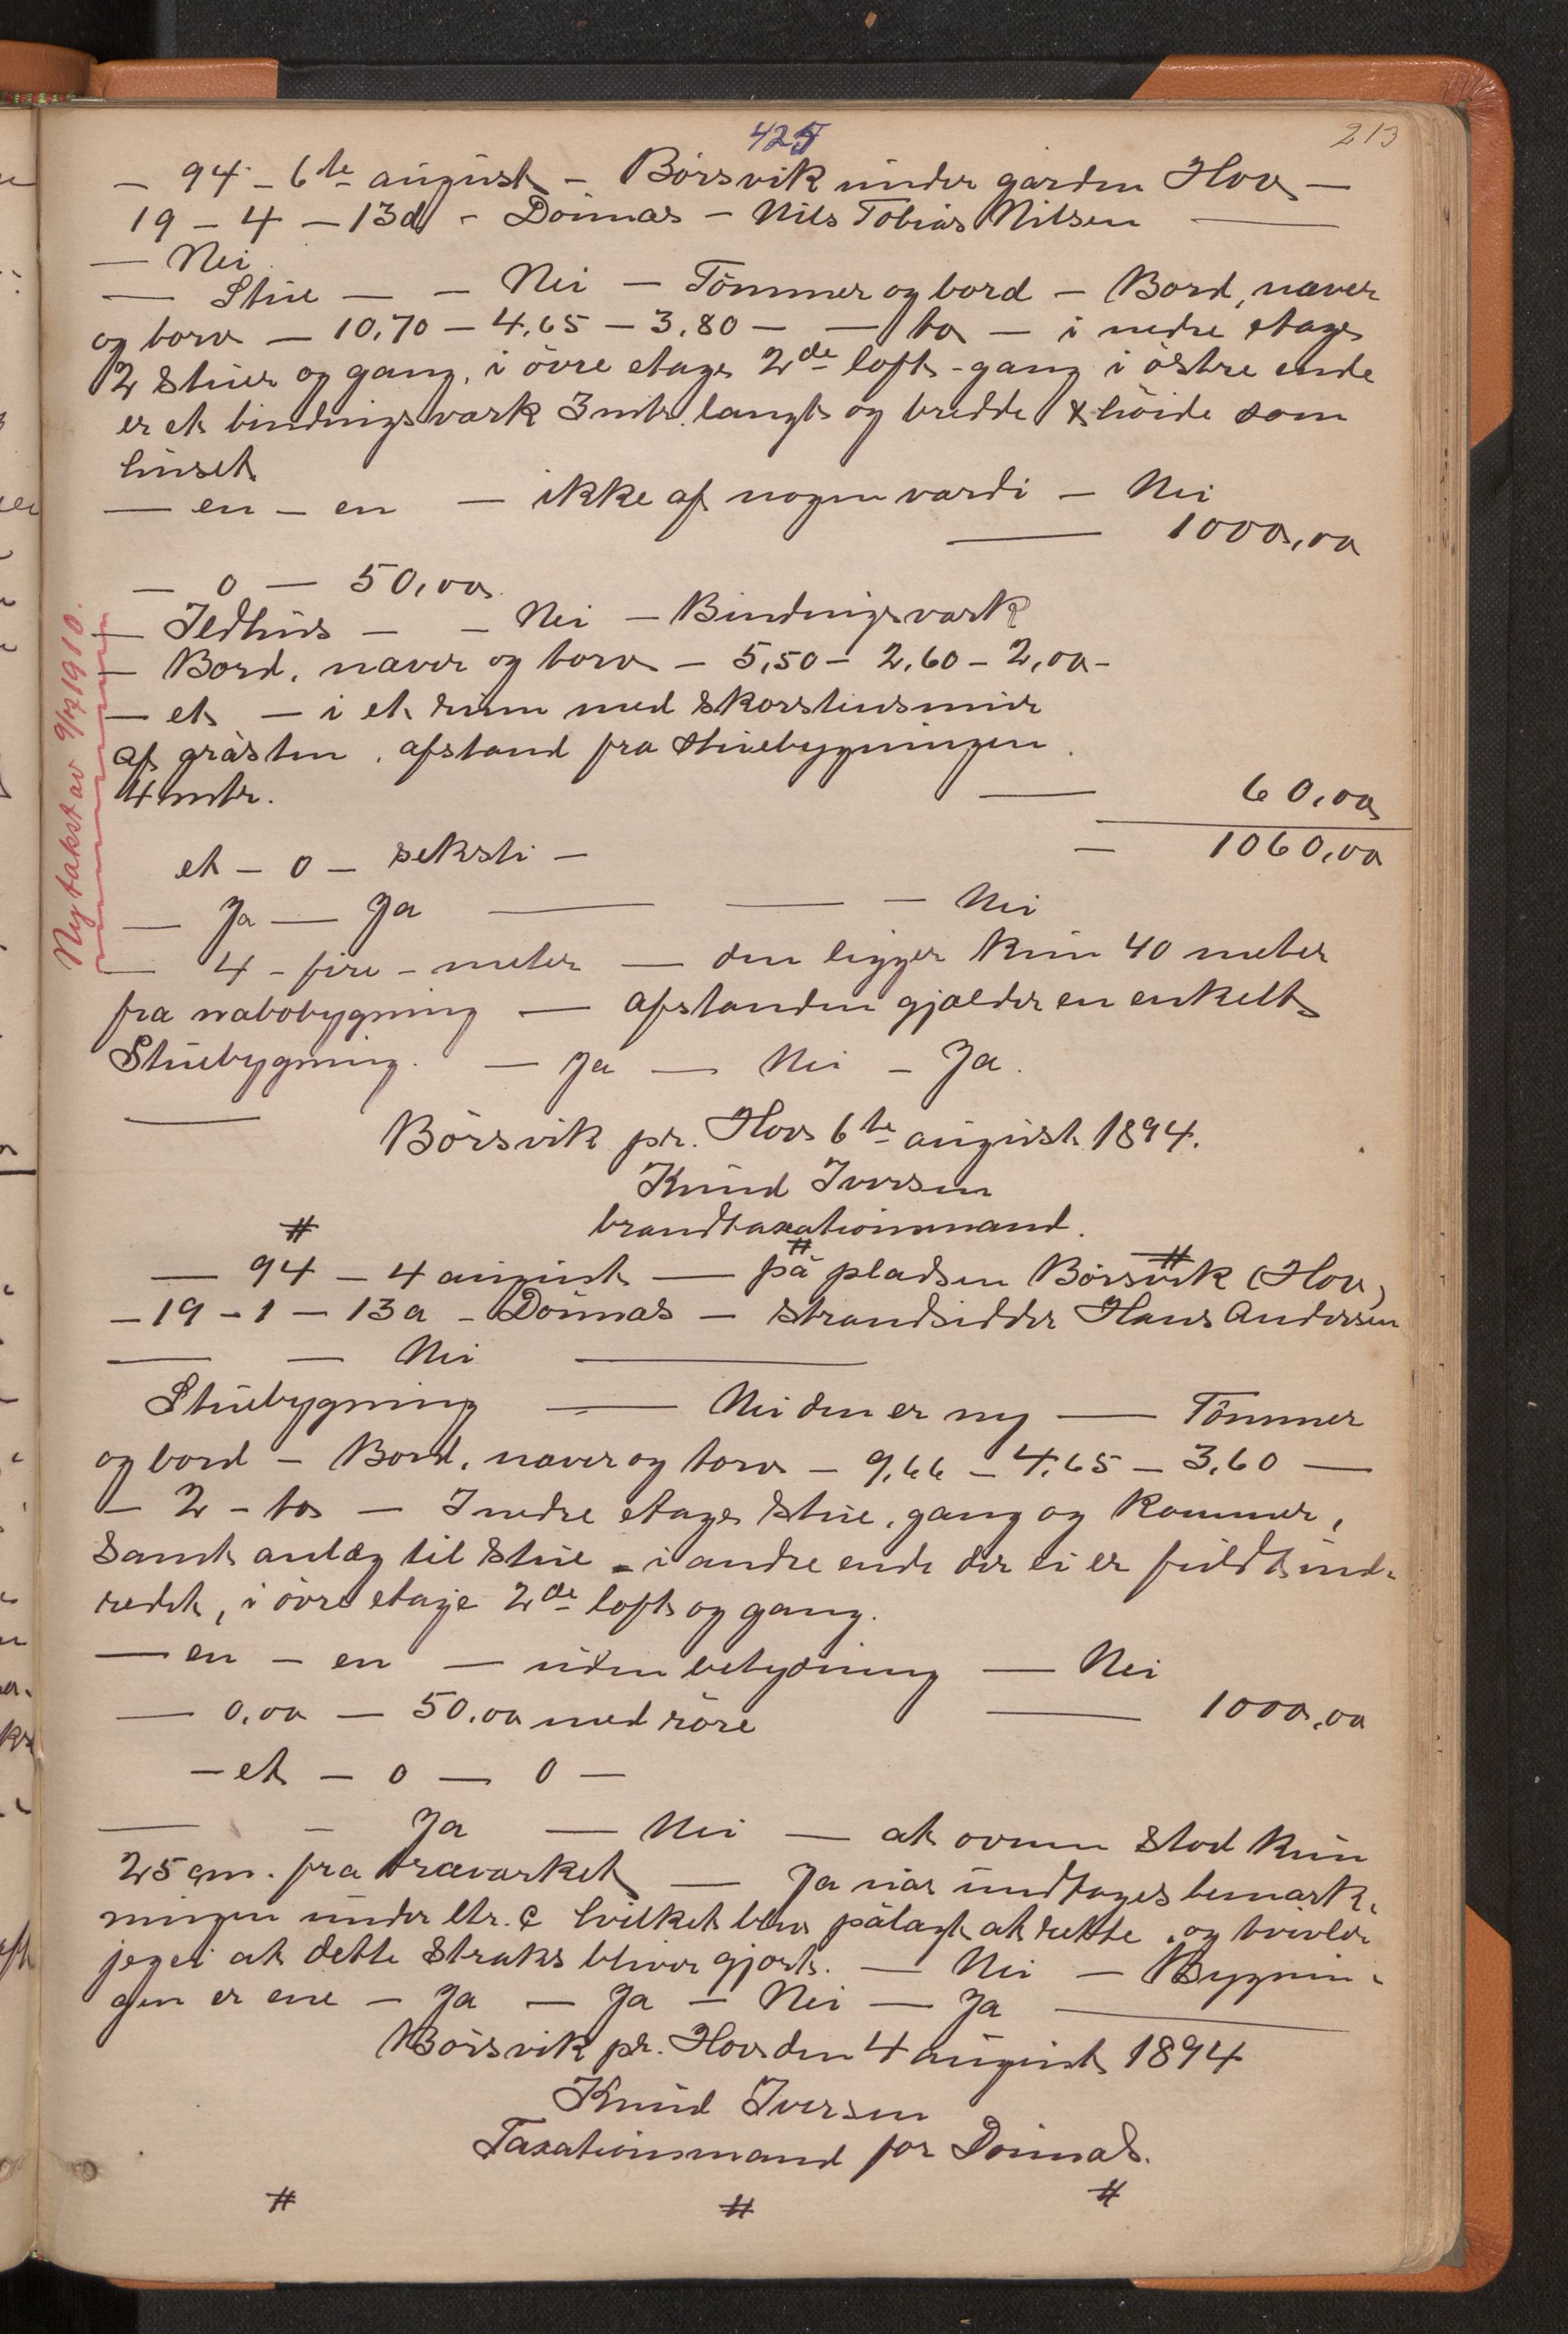 425
213
— 94 – 6te august – Börsvik under gården Hov —
19 – 4 – 13d – Dönnæs – Nils Tobias Nilsen —
— Nei
— Stue — – Nei – Tömmer og bord – Bord, næver
og torv – 10,70 – 4,65 – 3,80 – — to – i nedre etage
2 stuer og gang, i övre etage 2de loft - gang i östre ende
er et bindingsværk 3 mtr. langt og bredde & höide som
huset
— en – en — ikke af nogen værdi – Nei
— 1000,00
— 0 — 50,00
— Ildhus – – Nei – Bindingsværk
— Bord, næver og torv – 5,50 – 2,60 – 2,00 –
— et — i et rum med skorstensmur
af gråsten, afstand fra stuebygningen
4 mtr. — 60,00
et – 0 – seksti – — 1060,00
— Ja — Ja — — – Nei
— 4 – fire – meter — den ligger kun 40 meter
fra nabobygning — afstanden gjælder en enkelt
Stuebygning. — Ja — Nei – Ja.
— Börsvik pr. Hov 6te august 1894.
Knud Iversen
brandtaxationsmand.
# # #
— 94 – 4 august — på pladsen Börsvik (Hov)
– 19 – 1 – 13a – Dönnæs – strandsidder Hans Andersen
— — Nei —
Stuebygning — Nei den er ny — Tömmer
og bord – Bord, næver og torv – 9,66 – 4,65 – 3,60 —
– 2 – to – I nedre etage stue, gang og kammer,
samt anlæg til stue – i andre ende der ei er fuldt ind-
redet, i övre etage 2de loft og gang.
— en – en — uden betydning — Nei
— 0,00 — 50,00 med röre — 1000,00
– et – 0 — 0 —
— – Ja — Nei — at ovnen stod kun
25 cm. fra træværket — Ja når undtages bemærk-
ningen under ltr. c hvilket blev pålagt at rette, og tvivler
jeg ei at dette straks bliver gjort. — Nei — Bygnin-
gen er ene – Ja – Ja – Nei – Ja —
Börsvik pr. Hov den 4 august 1894
Knud Iversen
Taxationsmand for Dönnæs.
# # #
Ny takst av 9/7 1910.